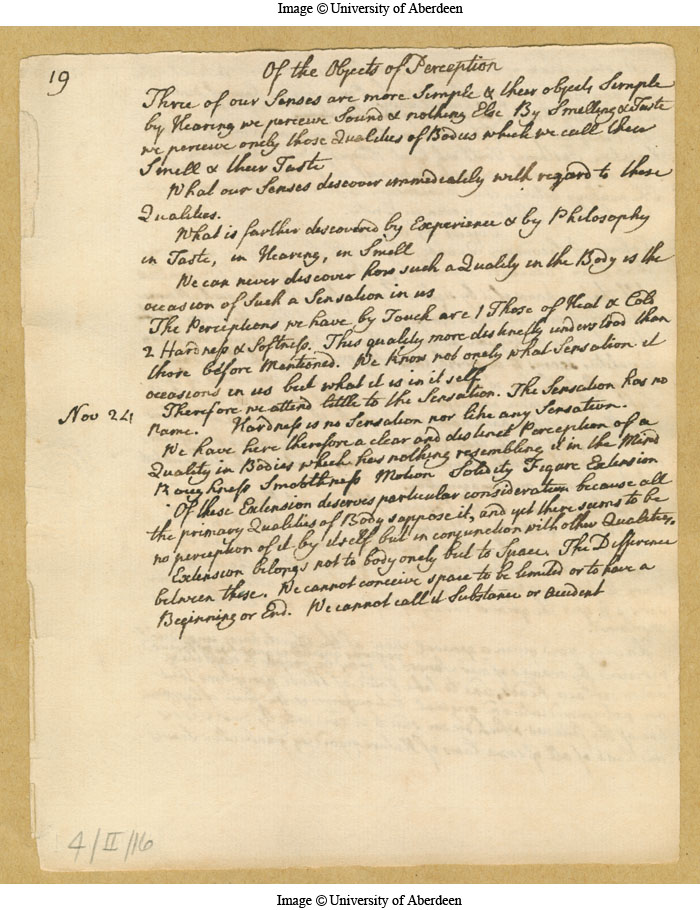 Image © University of Aberdeen
19
Of the Objects of Perception
Three of our Senses are more Simple & their objects Simple
by Hearing we perceive Sound & nothing Else By Smelling & Taste
we perceive onely those Qualities of Bodies which we call their
Smell & their Taste
What our Senses discover immediately with regard to these
Qualities.
What is farther discovered by Experience & by Philosophy
in Taste, in Hearing, in Smell
We can never discover how such a Quality in the Body is the
occasion of Such a Sensation in us
The Perceptions we have by Touch are 1 Those of Heat & Cold
2 Hardness & Softness. This quality more distinctly understood than
those before Mentioned. We know not onely what Sensation it
occasions in us but what it is in it self
Therefore we attend little to the Sensation. The Sensation has no
Nov 24
name. Hardness is no Sensation nor like any Sensation.
We have here therefore a clear and distinct Perception of a
Quality in Bodies which has nothing resembling it in the Mind
Roughness Smoothness Motion Solidity Figure Extension
Of these Extension deserves particular consideration because all
the primary Qualities of Body suppose it, and yet there seems to be
no perception of it by itself but in conjunction with other Qualities.
Extension belongs not to body onely but to Space. The Difference
between these. We cannot conceive space to be limited or to have a
Beginning or End. We cannot call it Substance or accident
4/II/16
Image © University of Aberdeen